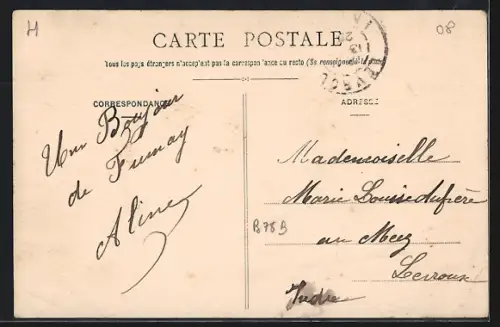 H
08
CARTE POSTALE
Tous les pays étrangers n'acceptent pas la correspondance au recto (Se renseigner à la poste)
CORRESPONDANCE
ADRESSE
Un Bonjour
de Fumay
Aline
Mademoiselle
Marie Louise
au
Levroux
Indre
B78B